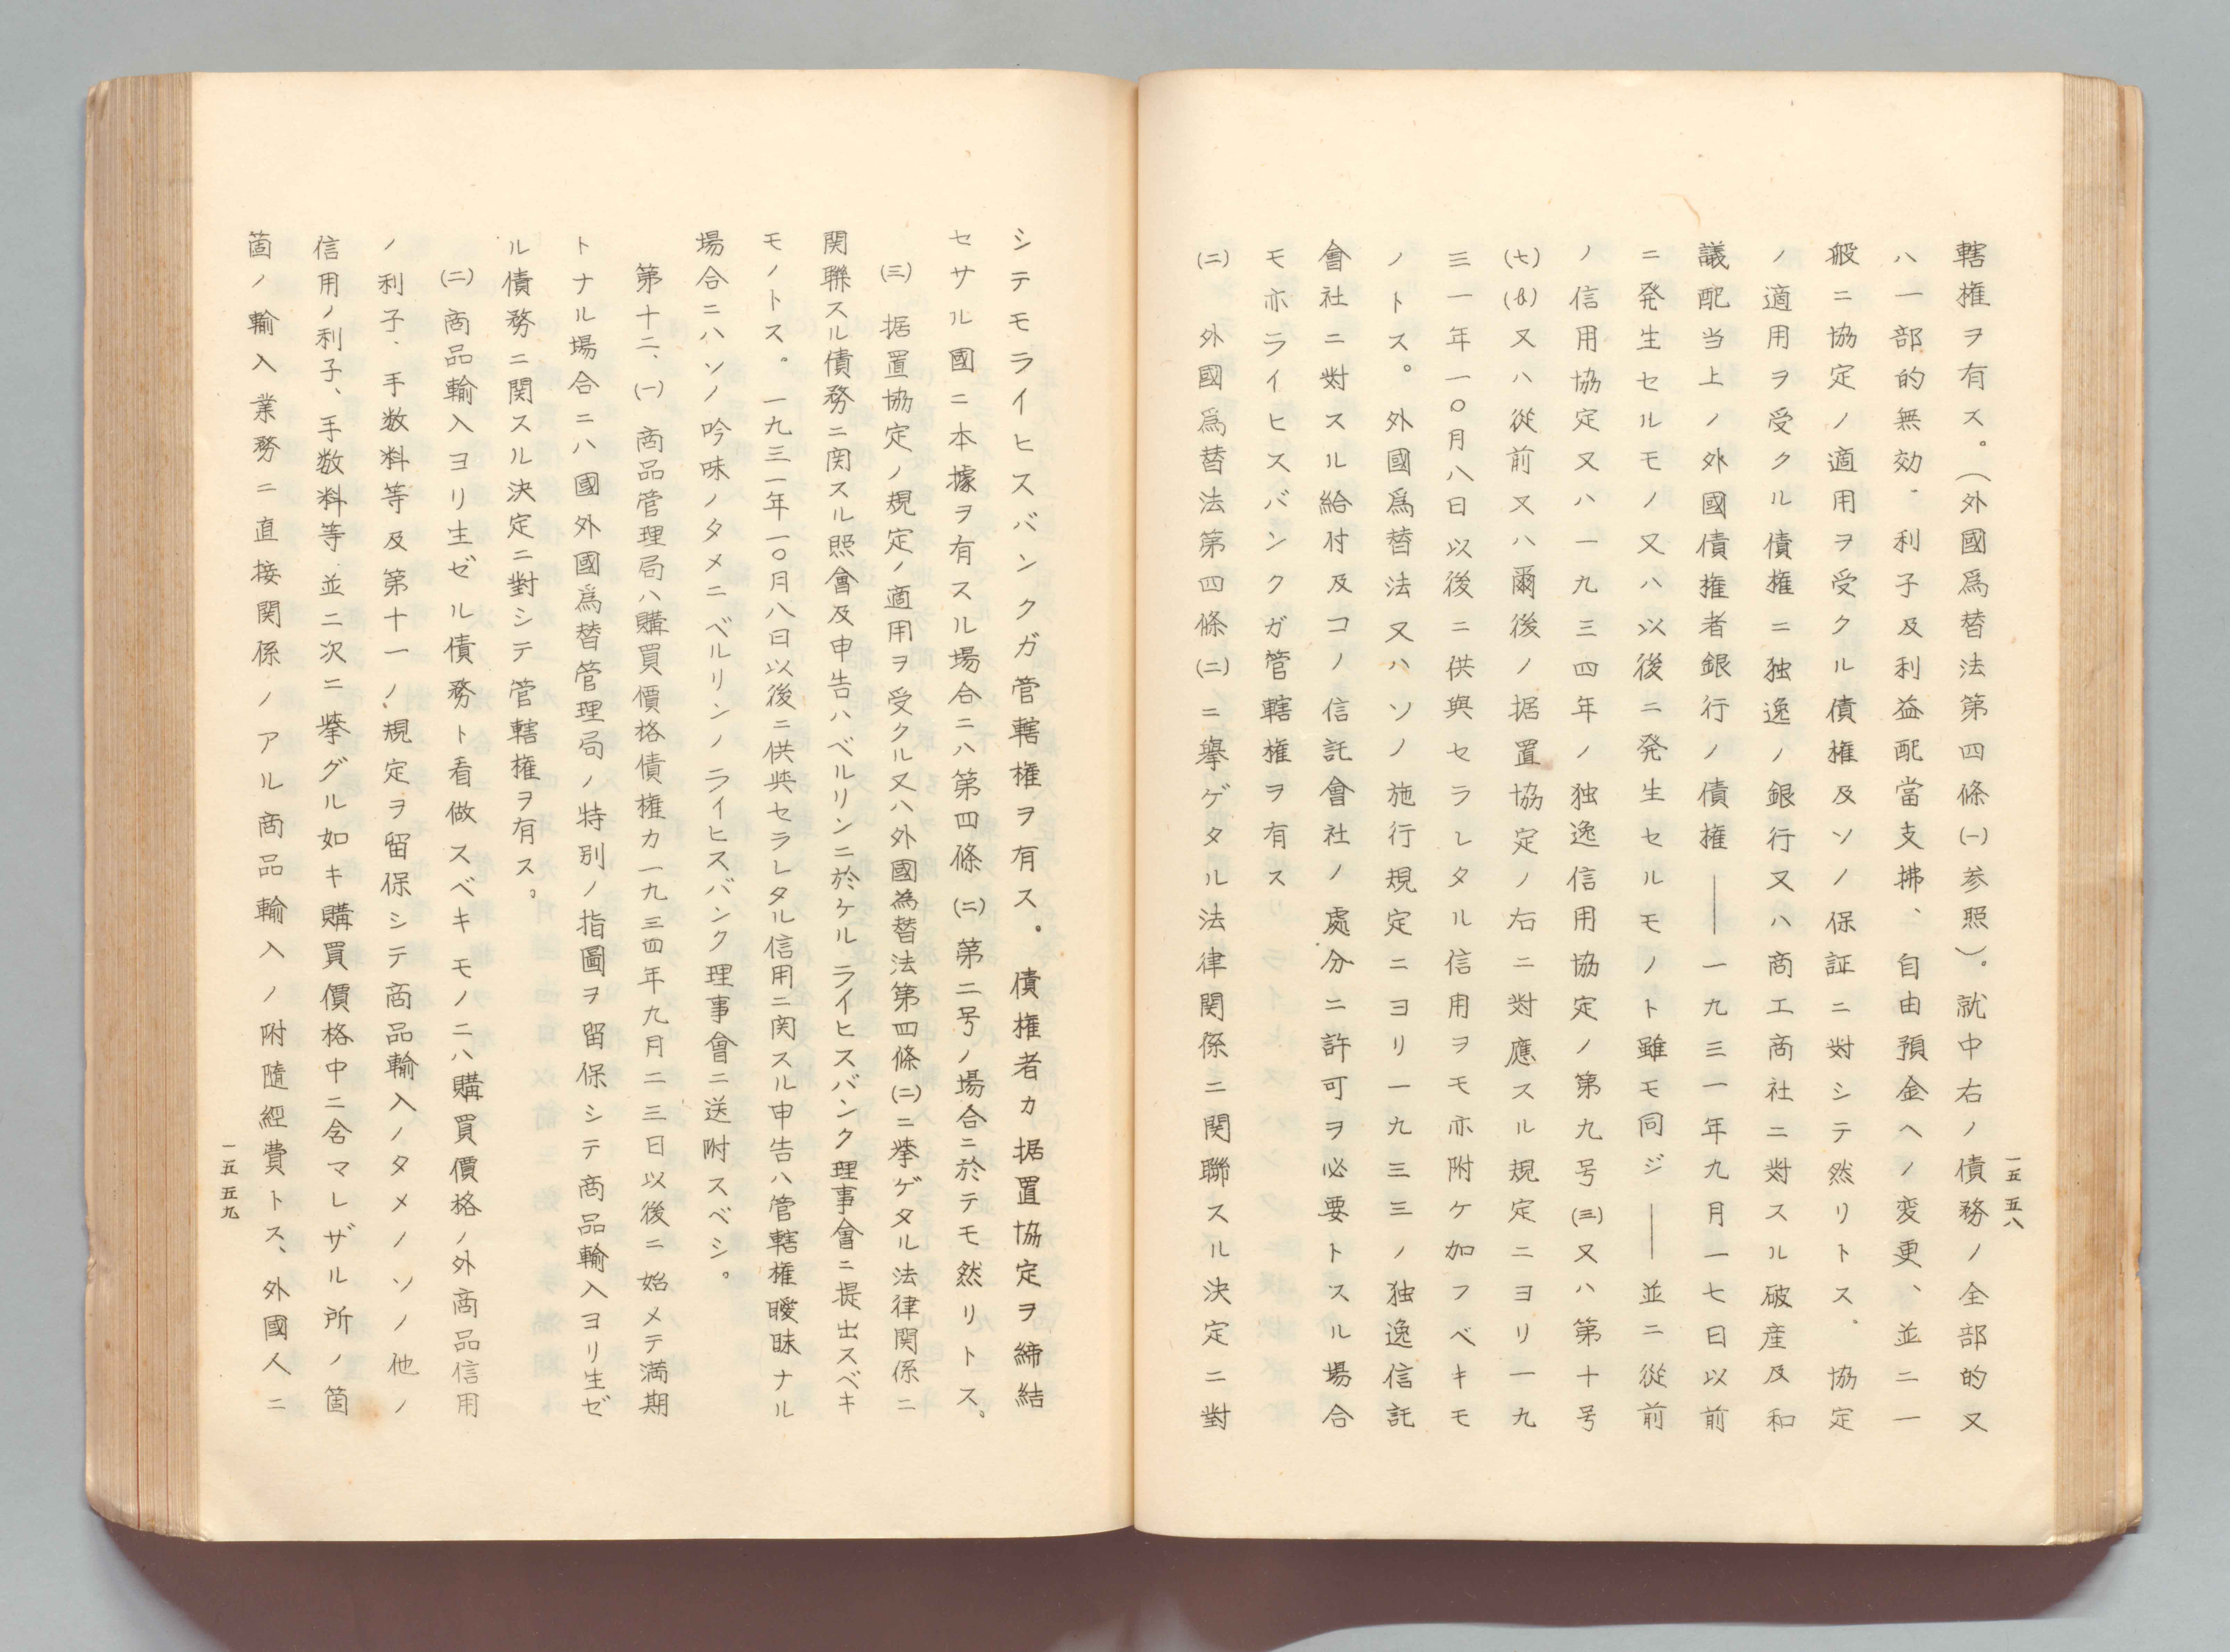 轄権ヲ有ス。（外國爲替法第四條㈠参照）。就中右ノ債務ノ全部的又
ハ一部的無効、利子及利益配當支拂、自由預金ヘノ変更、並ニ一
般ニ協定ノ適用ヲ受クル債権及ソノ保証ニ対シテ然リトス、協定
ノ適用ヲ受クル債権ニ独逸ノ銀行又ハ商工商社ニ対スル破産及和
議配当上ノ外國債権者銀行ノ債権――一九三一年九月一七日以前
ニ発生セルモノ又ハ以後ニ発生セルモノト雖モ同ジ――並ニ從前
ノ信用協定又ハ一九三四年ノ独逸信用協定ノ第九号㈢又ハ第十号
㈦又ハ從前又ハ爾後ノ据置協定ノ右ニ対應スル規定ニヨリ一九
三一年一〇月八日以後ニ供與セラレタル信用ヲモ亦附ケ加フベキモ
ノトス。外國爲替法又ハソノ施行規定ニヨリ一九三三ノ独逸信託
會社ニ対スル給付及コノ信託會社ノ處分ニ許可ヲ必要トスル場合
モ亦ライヒスバンクガ管轄権ヲ有ス
㈡　外國爲替法第四條㈡ニ擧ゲタル法律関係ニ関聯スル決定ニ對
一五五八
シテモライヒスバンクガ管轄権ヲ有ス。債権者カ据置協定ヲ締結
セサル國ニ本據ヲ有スル場合ニハ第四條㈡第二号ノ場合ニ於テモ然リトス、
㈢　据置協定ノ規定ノ適用ヲ受クル又ハ外國為替法第四條㈡ニ挙ゲタル法律関係ニ
関聯スル債務ニ関スル照會及申告ハベルリンニ於ケルライヒスバンク理事會ニ提出スベキ
モノトス。一九三一年一〇月八日以後ニ供與セラレタル信用ニ関スル申告ハ管轄権曖昧ナル
場合ニハソノ吟味ノタメニベルリンノライヒスバンク理事會ニ送附スベシ。
第十二、㈠　商品管理局ハ購買價格債権カ一九三四年九月二三日以後ニ始メテ満期
トナル場合ニハ國外國爲替管理局ノ特別ノ指圖ヲ留保シテ商品輸入ヨリ生ゼ
ル債務ニ関スル決定ニ對シテ管轄権ヲ有ス。
㈡　商品輸入ヨリ生ゼル債務ト看做スベキモノニハ購買價格ノ外商品信用
ノ利子、手数料等及第十一ノ規定ヲ留保シテ商品輸入ノタメノソノ他ノ
信用ノ利子、手数料等並ニ次ニ挙グル如キ購買價格中ニ含マレザル所ノ箇
箇ノ輸入業務ニ直接関係ノアル商品輸入ノ附隨經費トス、外國人ニ
一五五九